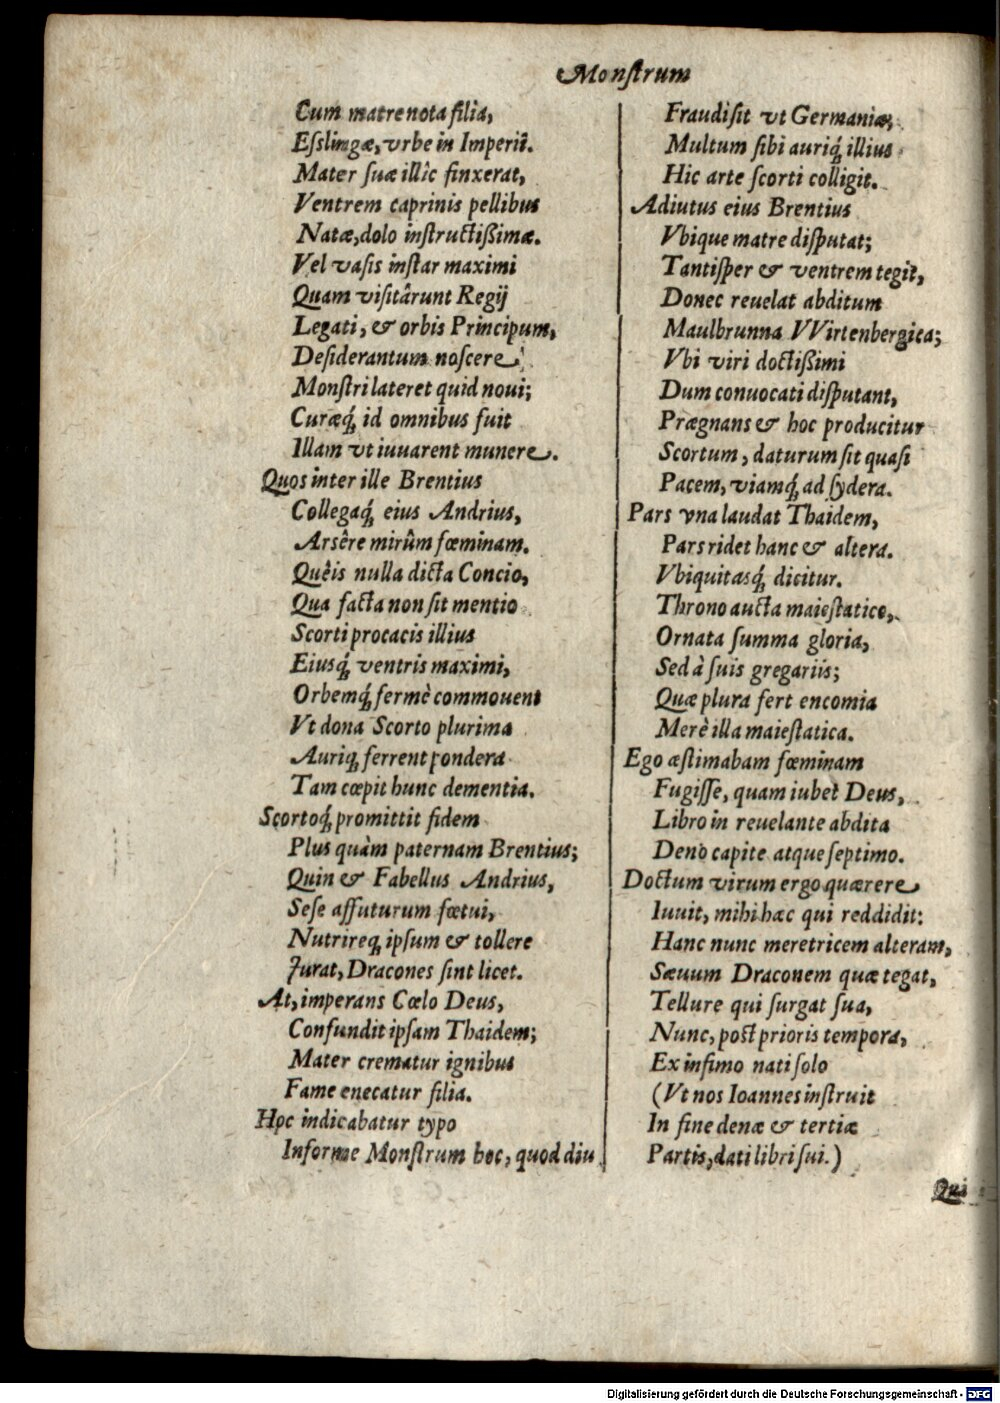 Monſtrum
Cum matre nota filia,
Eſslingæ, vrbe in Imperii.
Mater ſuæ illîc finxerat,
Ventrem caprinis pellibus
Natæ, dolo inſtructißimæ.
Vel vaſis inſtar maximi
Quam viſitârunt Regij
Legati, & orbis Principum,
Deſiderantum noſcere
Monſtri lateret quid noui;
Curæq́; id omnibus fuit
Illam vt iuuarent munere.
Quos inter ille Brentius
Collegaq́; eius Andrius,
Arſêre mirûm fœminam.
Quêis nulla dicta Concio,
Qua facta non ſit mentio
Scorti procacis illius
Eiusq́; ventris maximi,
Orbemq́; fermè commouent
Vt dona Scorto plurima
Auriq; ferrent pondera
Tam cœpit hunc dementia.
Scortoq́; promittit fidem
Plus quàm paternam Brentius;
Quin & Fabellus Andrius,
Seſe aſſuturum fœtui,
Nutrireq; ipſum & tollere
Jurat, Dracones ſint licet.
At, imperans Cœlo Deus,
Confundit ipſam Thaidem;
Mater crematur ignibus
Fame enecatur filia.
Hoc indicabatur typo
Informe Monſtrum hoc, quod diu
Fraudi ſit vt Germaniæ,
Multum ſibi auriq́; illius
Hic arte ſcorti colligit.
Adiutus eius Brentius
Vbique matre diſputat;
Tantiſper & ventrem tegit,
Donec reuelat abditum
Maulbrunna VVirtenbergica;
Vbi viri doctißimi
Dum conuocati diſputant,
Prægnans & hoc producitur
Scortum, daturum ſit quaſi
Pacem, viamq́; ad ſydera.
Pars vna laudat Thaidem,
Pars ridet hanc & altera.
Vbiquitasq́; dicitur.
Throno aucta maieſtatico,
Ornata ſumma gloria,
Sed à ſuis gregariis;
Quæ plura fert encomia
Merè illa maieſtatica.
Ego æſtimabam fœminam
Fugiſſe, quam iubet Deus,
Libro in reuelante abdita
Deno capite atque ſeptimo.
Doctum virum ergo quærere
Iuuit, mihi hæc qui reddidit:
Hanc nunc meretricem alteram,
Sæuum Draconem quæ tegat,
Tellure qui ſurgat ſua,
Nunc, poſt prioris tempora,
Ex infimo nati ſolo
(Vt nos Ioannes inſtruit
In fine denæ & tertiæ
Partis, dati libri ſui.)
Qui
Digitalisierung gefördert durch die Deutsche Forschungsgemeinschaft - DFG